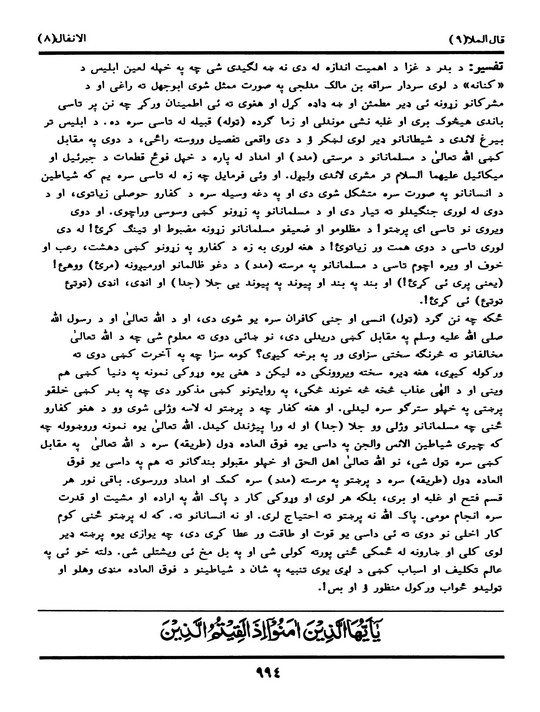 قال الملا(٩)
الانفال(٨)
تفسیر: د بدر د غزا د اهمیت اندازه له دی نه ښه لګیدی شی چه په خپله لعین ابلیس د
«کنانه» د لوی سردار سراقه بن مالک مدلجی په صورت ممثل شوی ابوجهل ته راغی او د
مشرکانو زړونه ئی ډیر مطمئن او ښه ډاډه کړل او هغوی ته ئی اطمینان ورکړ چه نن پر تاسی
باندی هیڅوک بری او غلبه نشی موندلی او زما ګرده (توله) قبیله له تاسی سره ده. د ابلیس تر
بیرغ لاندی د شیطانانو ډیر لوی لښکر ؤ د دی واقعی تفصیل وروسته راځی، د دوی په مقابل
کښی الله تعالیٰ د مسلمانانو د مرستی (مدد) او امداد له پاره د خپل فوځ قطعات د جبرئیل او
میکائیل علیهما السلام تر مشری لاندی ولیږل. او وئی فرمایل چه زه له تاسی سره یم که شیاطین
د انسانانو په صورت سره متشکل شوی دی او په دغه وسیله سره د کفارو حوصلی زیاتوی، او د
دوی له لوری جنګیدلو ته تیار دی او د مسلمانانو په زړونو کښی وسوسی وراچوی. او دوی
ویروی نو تاسی ای پرښتو! د مظلومو او ضعیفو مسلمانانو زړونه مضبوط او ټینګ کړئ! له دی
لوری تاسی د دوی همت ور زیاتوئ! د هغه لوری به زه د کفارو په زړونو کښی دهشت، رعب او
خوف او ویره اچوم تاسی د مسلمانانو په مرسته (مدد) د دغو ظالمانو اورمیږونه (مرئ) ووهئ!
(یعنی پری ئی کړئ!) او بند په بند او پیوند په پیوند یی جلا (جدا) او اندی، اندی (توتئ
توتئ) ئی کړئ!.
ځکه چه نن ګرد (تول) انسی او جنی کافران سره یو شوی دی، او د الله تعالیٰ او د رسول الله
صلی الله علیه وسلم په مقابل کښی دریدلی دی، نو ښائی دوی ته معلوم شی چه د الله تعالیٰ
مخالفانو ته څرنګه سختی سزاوی ور په برخه کیږی؟ کومه سزا چه په آخرت کښی دوی ته
ورکوله کیږی، هغه ډیره سخته ویروونکی ده لیکن د هغی یوه وړوکی نمونه په دنیا کښی هم
وینی او د الٰهی عذاب څخه څه خوند څکی، په روایتونو کښی مذکور دی چه په بدر کښی خلقو
پرښتی په خپلو سترګو سره لیدلی. او هغه کفار چه د پرښتو له لاسه وژلی شوی وو د هغو کفارو
ځنی چه مسلمانانو وژلی وو جلا (جدا) او له ورا پیژندل کیدل. الله تعالیٰ یوه نمونه وروښووله چه
که چیری شیاطین الانس والجن په داسی یوه فوق العاده ډول (طریقه) سره د الله تعالیٰ په مقابل
کښی سره تول شی، نو الله تعالیٰ اهل الحق او خپلو مقبولو بندګانو ته هم په داسی یو فوق
العاده ډول (طریقه) سره د پرښتو په مرسته (مدد) سره کمک او امداد ورسوی. باقی نور هر
قسم فتح او غلبه او بری، بلکه هر لوی او وړوکی کار د پاک الله په اراده او مشیت او قدرت
سره انجام مومی. پاک الله نه پرښتو ته احتیاج لری. او نه انسانانو ته. که له پرښتو ځنی کوم
کار اخلی نو دوی ته ئی داسی یو قوت او طاقت ور عطا کړی دی، چه یوازی یوه پرښته ډیر
لوی کلی او ښارونه له ځمکی ځنی پورته کولی شی او په بل مخ ئی ویشتلی شی. دلته خو ئی په
عالم تکلیف او اسباب کښی د لږی یوی تنبیه په شان د شیاطینو د فوق العاده منډی وهلو او
تولیدو ځواب ورکول منظور ؤ او بس!.
يٰۤاَيُّهَا الَّذِيْنَ اٰمَنُوْۤا اِذَا لَقِيْتُمُ الَّذِيْنَ
٩٩٤